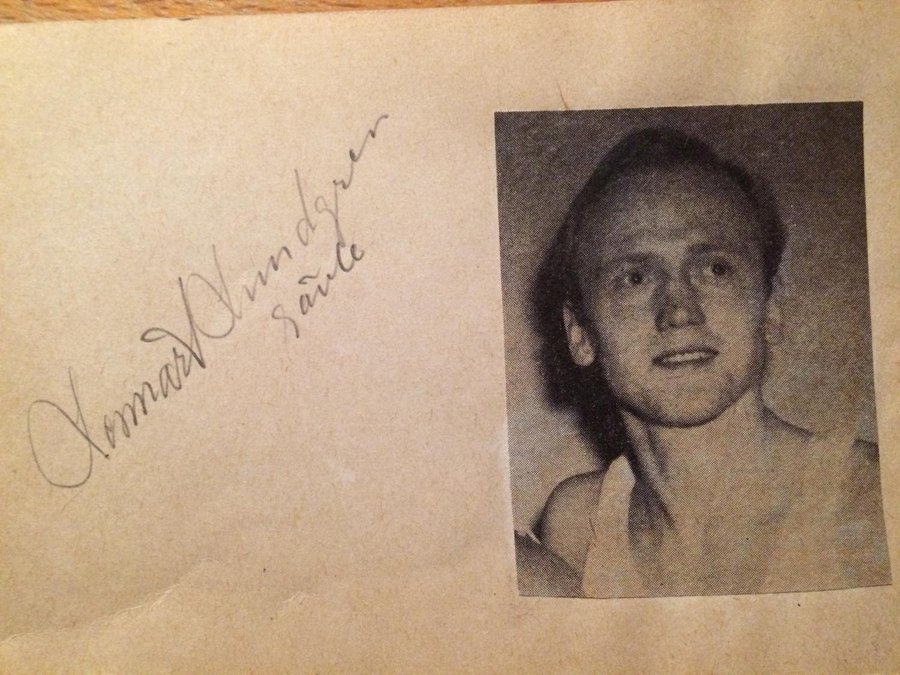 Lennart Lundgren
Gävle